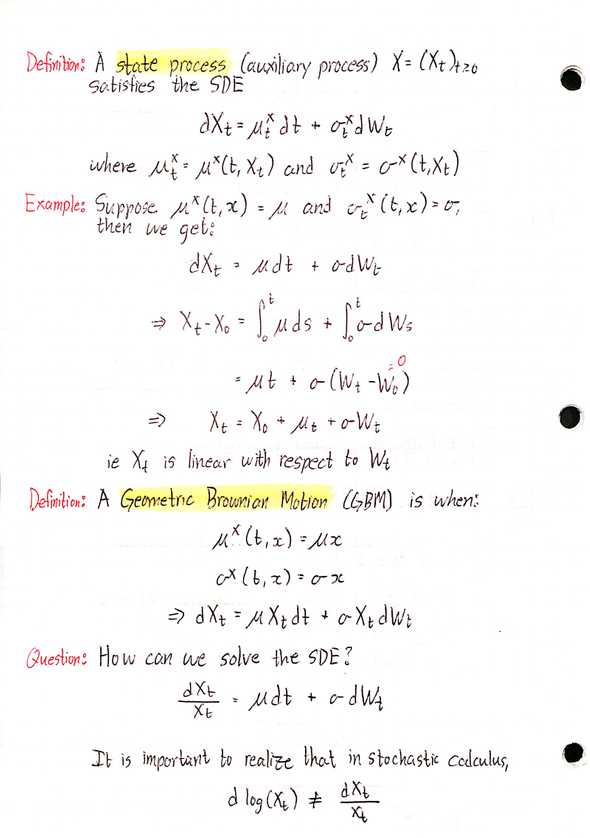 Definition: A state process (auxiliary process) X = (Xₜ)ₜ≥₀
satisfies the SDE
dXₜ = μₜˣ dt + σₜˣ dWₜ
where μₜˣ = μˣ(t, Xₜ) and σₜˣ = σˣ(t, Xₜ)
Example: Suppose μˣ(t, x) = μ and σₜˣ(t, x) = σ,
then we get:
dXₜ = μdt + σdWₜ
⇒ Xₜ - X₀ = ∫₀ᵗ μds + ∫₀ᵗ σdWₛ
= μt + σ(Wₜ - W₀) = 0
⇒ Xₜ = X₀ + μₜ + σWₜ
ie Xₜ is linear with respect to Wₜ
Definition: A Geometric Brownian Motion (GBM) is when:
μˣ(t, x) = μx
σˣ(t, x) = σx
⇒ dXₜ = μXₜdt + σXₜdWₜ
Question: How can we solve the SDE?
dXₜ/Xₜ = μdt + σdWₜ
It is important to realize that in stochastic calculus,
d log(Xₜ) ≠ dXₜ/Xₜ